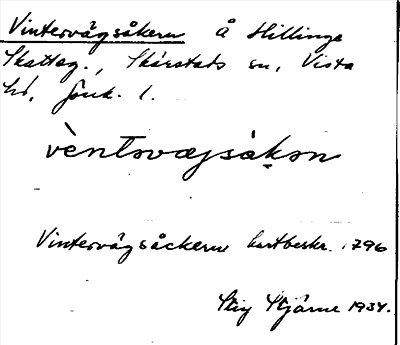 Vintervägsåkern Å Hillinge
Skattag., Skärstads sn, Vista
hd, Jönk. l.
vèntərvæɡsàkən
Vintervägsåckern kartbeskr. 1796
Stig Stjärne 1934.